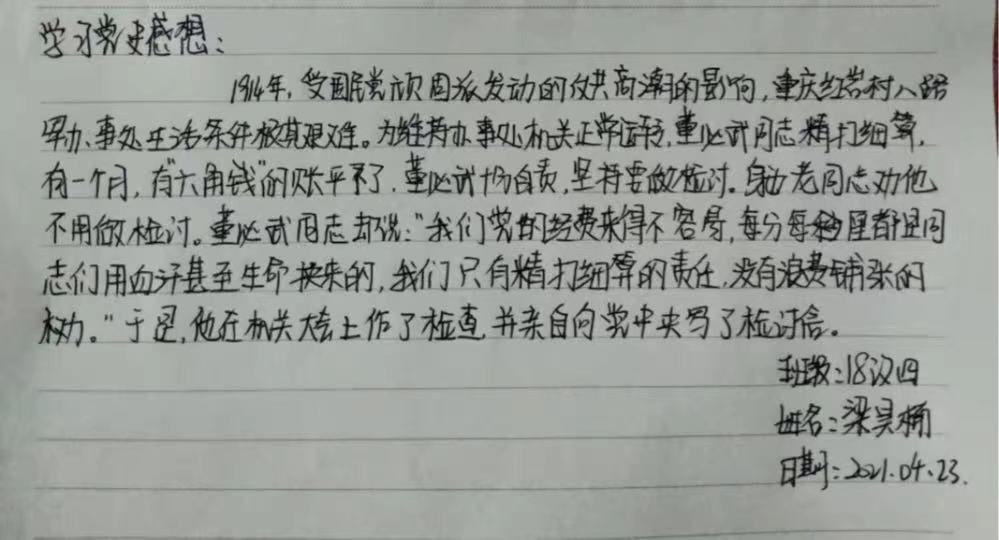 学习党史感想：
1914年，受国民党顽固派发动的反共高潮的影响，重庆红岩村八路
军办事处生活条件极其艰难。为维持办事处机关正常运转，董必武同志精打细算，
有一个月，有"六角钱"的账平不了，董必武十分自责，坚持要做检讨。身边老同志劝他
不用做检讨。董必武同志却说："我们党的经费来得不容易，每分每厘都是同
志们用血汗甚至生命换来的，我们只有精打细算的责任，没有浪费铺张的
权力。"于是，他在机关大会上作了检查，并亲自向党中央写了检讨信。
班级：18汉四
姓名：梁昊桶
日期：2021.04.23.